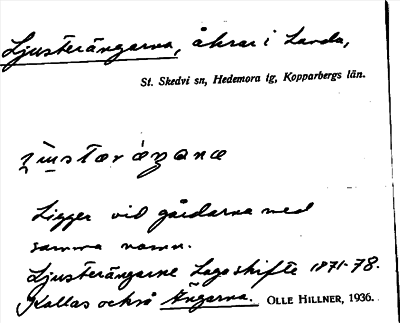 Ljusterängarna, åkrar i Landa,
St. Skedvi sn, Hedemora tg, Kopparbergs län.
Ligger vid gårdarna med
samma namn.
Ljusterängarne Laga skifte 1871-78.
Kallas också Ängarna. OLLE HILLNER, 1936.